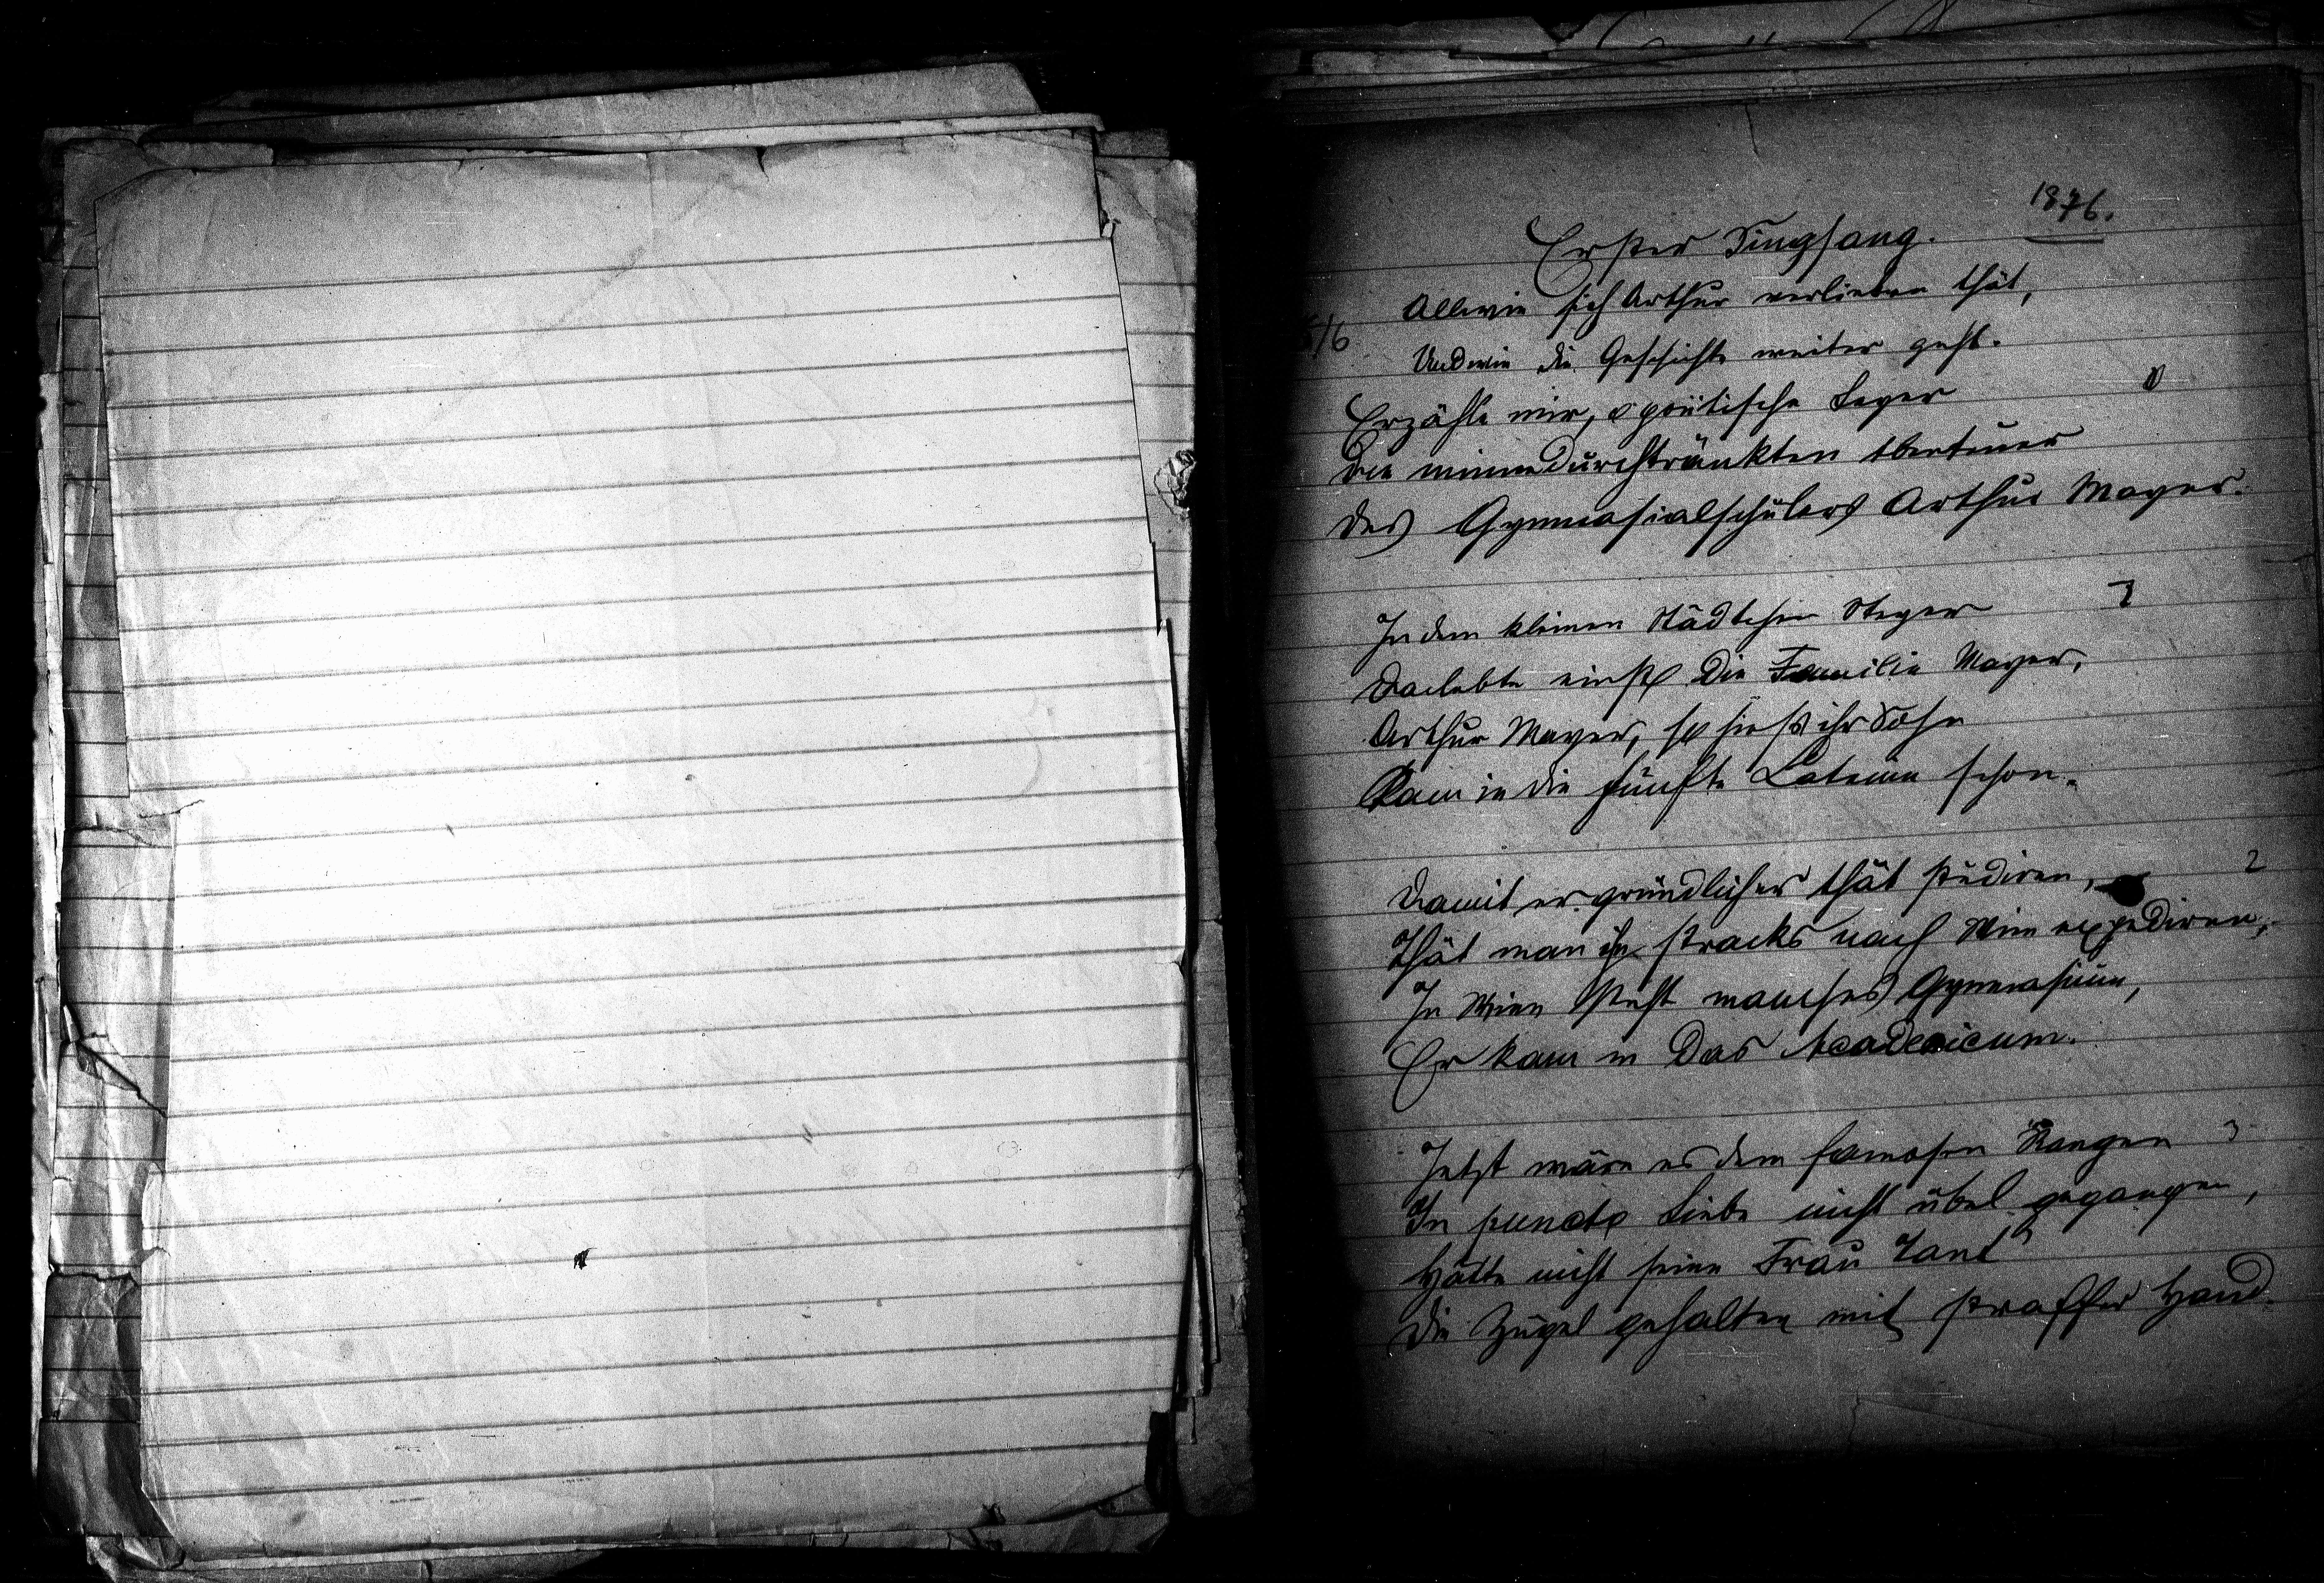 1876.
Erster Singsang.
Allwie sich Arthur verlieben thät,
5/6
Und wie die Geschichte weiter geht.
0
Erzähle mir, o poëtische Leyer
Die minnedurchtränkten Abenteuer
Des Gymnasialschülers Arthur Mayer.
1
In dem kleinen Städtchen Steyer
Da lebte einst die Familie Mayer,
Arthur Mayer, so hieß ihr Sohn
Kam in die fünfte Latein schon.
2
Damit er gründlicher thät studiren,
Thät man ihn stracks nach Wien expediren,
In Wien steht manches Gymnasium,
Er kam in das Academicum.
3
Jetzt wäre es dem famosen Rangen
In puncto Liebe nicht übel gegangen,
Hätte nicht seine Frau Tant
Die Zügel gehalten mit straffer Hand.